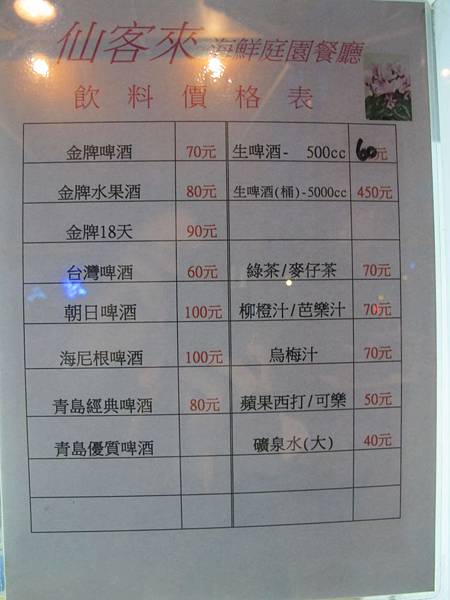 仙客來 海鮮庭園餐廳
飲料價格表
金牌啤酒 70元 生啤酒- 500cc 60元
金牌水果酒 80元 生啤酒(桶)-5000cc 450元
金牌18天 90元
台灣啤酒 60元 綠茶/麥仔茶 70元
朝日啤酒 100元 柳橙汁/芭樂汁 70元
海尼根啤酒 100元 烏梅汁 70元
青島經典啤酒 80元 蘋果西打/可樂 50元
青島優質啤酒 礦泉水(大) 40元